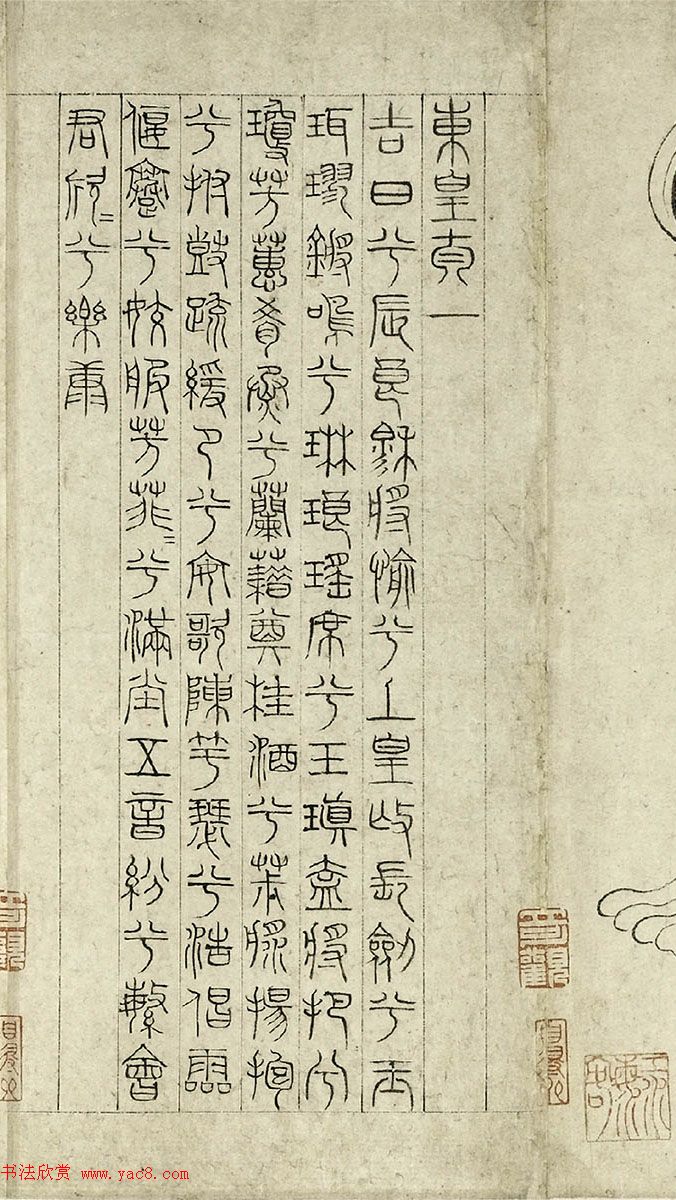 東皇太一
吉日兮辰良穆將愉兮上皇撫長劍兮玉
珥璆鏘鳴兮琳琅瑤席兮玉瑱盍將把兮
瓊芳蕙肴蒸兮蘭藉奠桂酒兮椒漿揚枹
兮拊鼓疏緩節兮安歌陳竽瑟兮浩倡靈
偃蹇兮姣服芳菲〻兮滿堂五音紛兮繁會
君欣〻兮樂康
书法欣赏 www.yac8.com